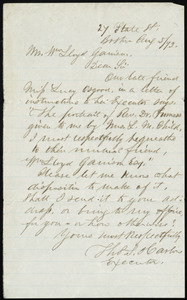 27 State St.
Boston Aug 5/73.
Mr. Wm Lloyd Garrison,
Dear Sir
Our late friend
Miss Lucy Osgood, in a letter of
instructions to her Executor says
"The portrait of Rev. Dr. Furness
given to me by Mrs L. M. Child,
I must respectfully request
to their mutual friend,
Wm Lloyd Garrison Esq."
Please let me know what
disposition to make of it,
Shall I send it to your ad-
dress, or bring to my office
for you - or how otherwise?
Yours most Respectfully
Executor.